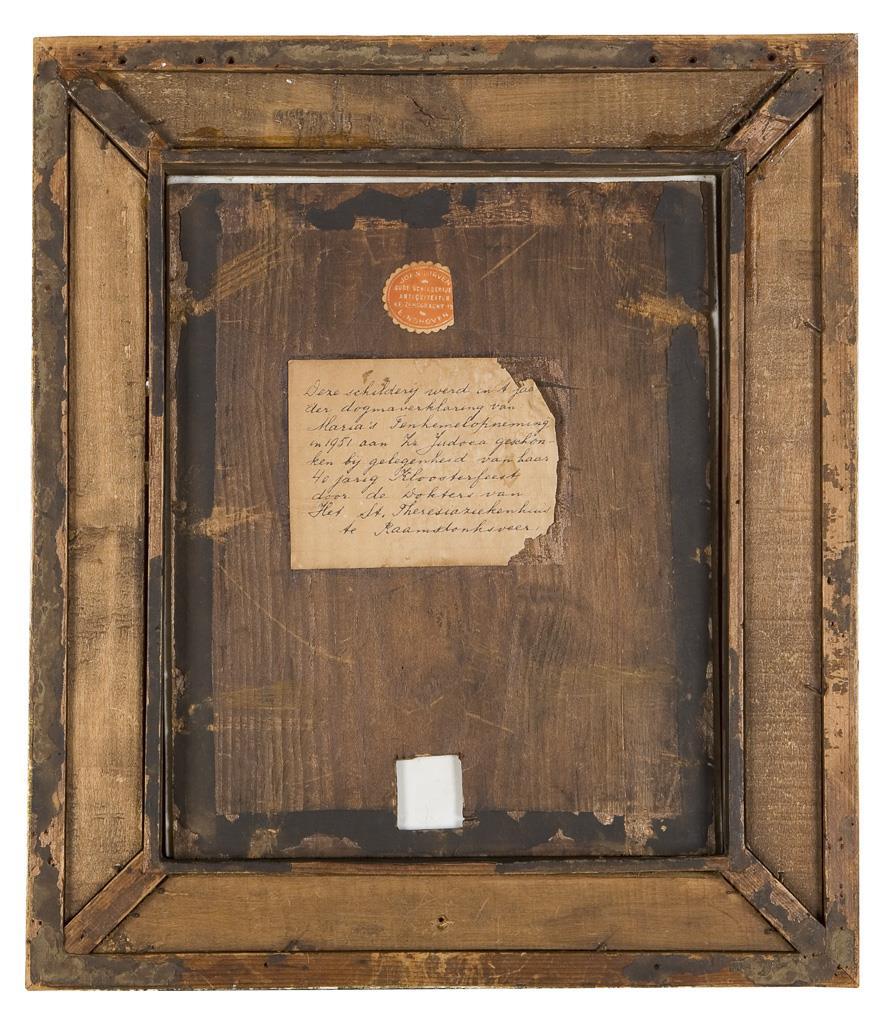 OUDE SCHILDERIJE
ANTIQUITEITEN
KEIZERSGRACHT
EINDHOVEN
Deze schilderij werd in 't jaa
der dogmaverklaring van
Maria's Tenhemelopneming
in 1951 aan Zr Judoca geschon-
ken bij gelegenheid van haar
40 jarig Kloosterfeest
door de Dokters van
Het St. Theresiaziekenhuis
te Raamsdonksveer.